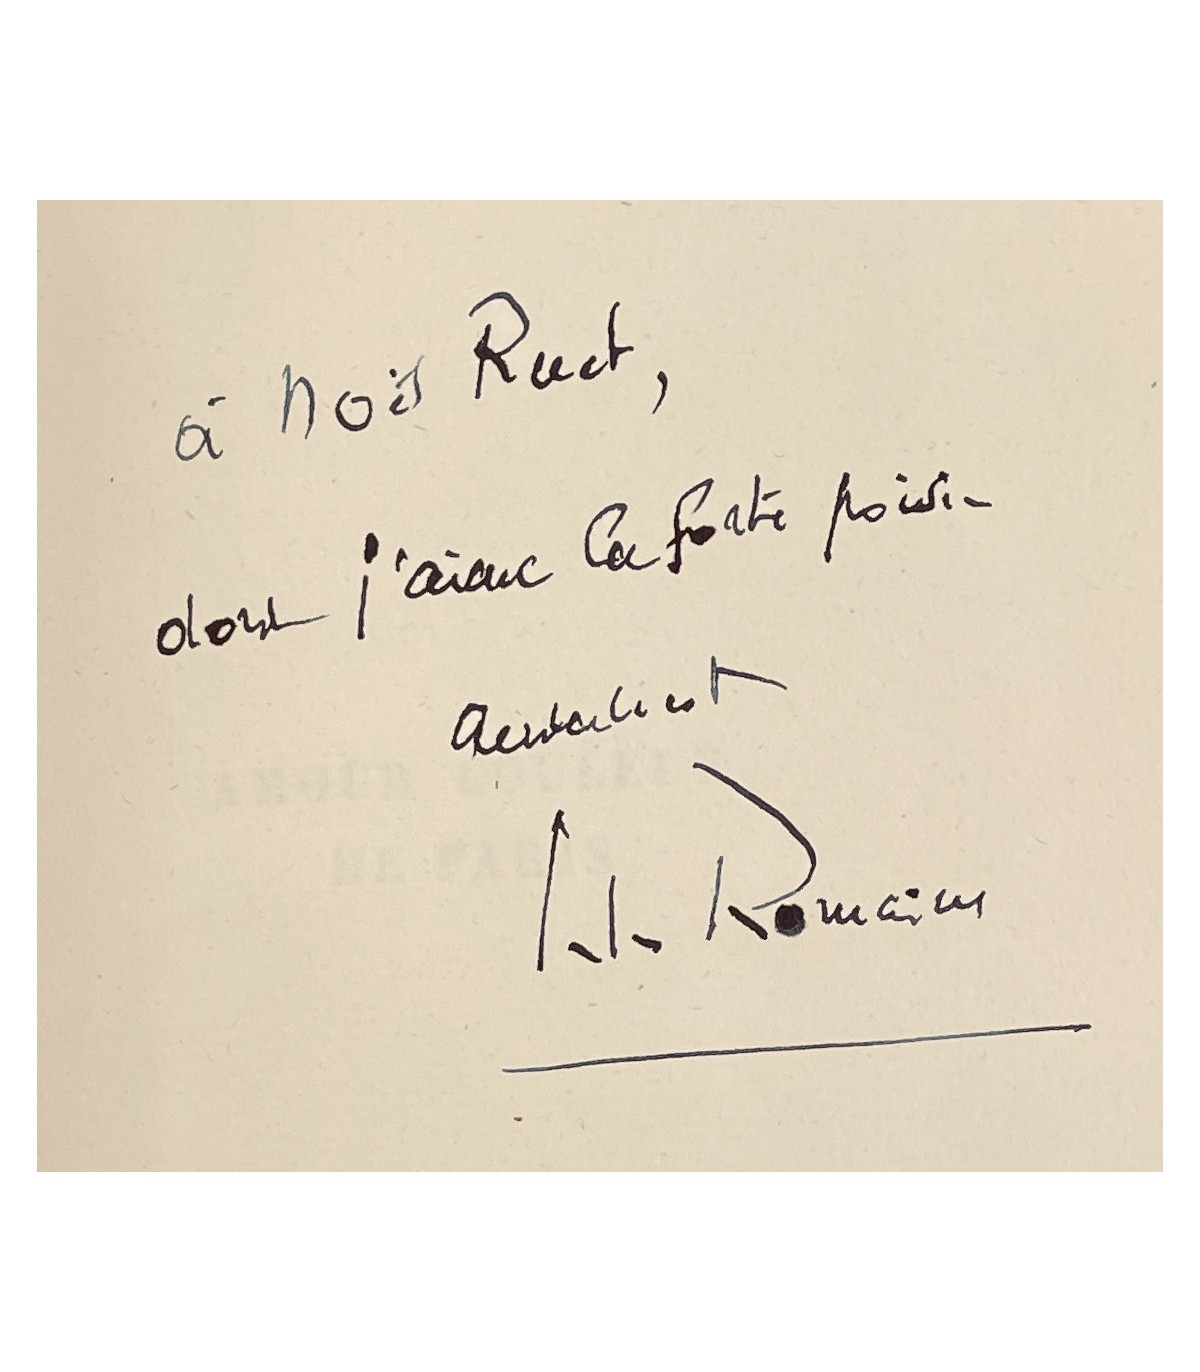 à Noël Ruet,
dont j'aime la forte poésie
amicalement
Jules Romains
AMOUR COULEUR
DE PARIS